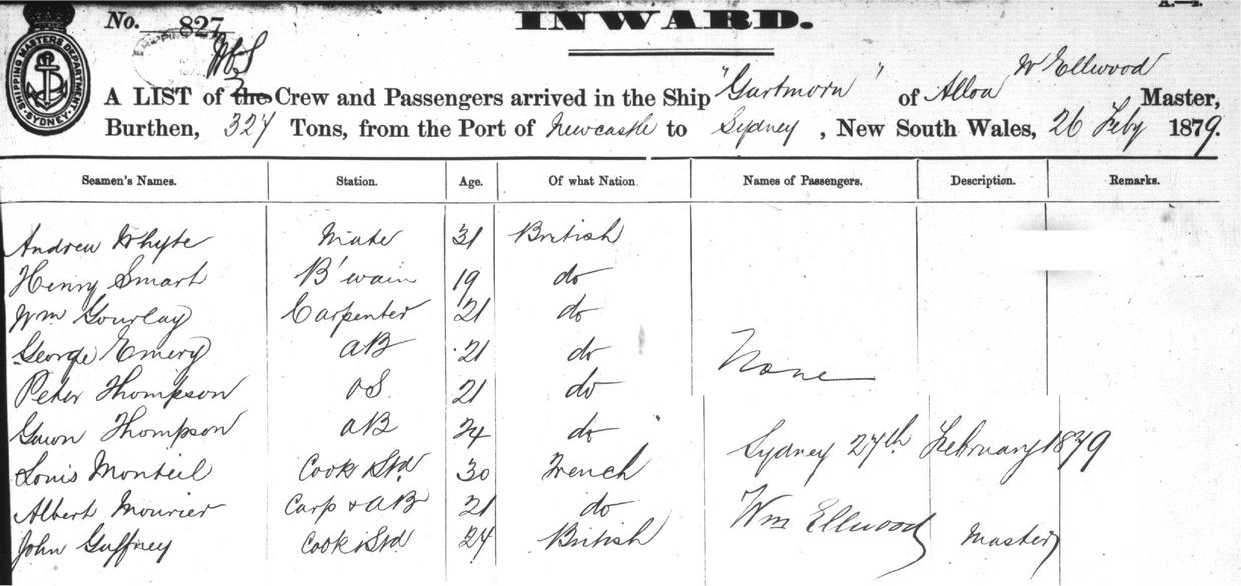 No. 827
INWARD.
A.—4.
SHIPPING MASTERS DEPARTMENT SYDNEY
W Ellwood
A LIST of the Crew and Passengers arrived in the Ship "Gartmorn" of Alloa Master,
Burthen, 327 Tons, from the Port of Newcastle to Sydney, New South Wales, 26 Feby 1879.
Seamen's Names. Station. Age. Of what Nation. Names of Passengers. Description. Remarks.
Andrew Whyte Mate 31 British
Henry Smart B'wain 19 do
Wm Gourlay Carpenter 21 do
George Emery AB 21 do
None
Peter Thompson OS 21 do
Gavon Thompson AB 24 do
Sydney 27th February 1879
Louis Monteil Cook & Std. 30 French
Albert Mourier Carp & AB 21 do
Wm Ellwood Master
John Guffney Cook & Std 24 British